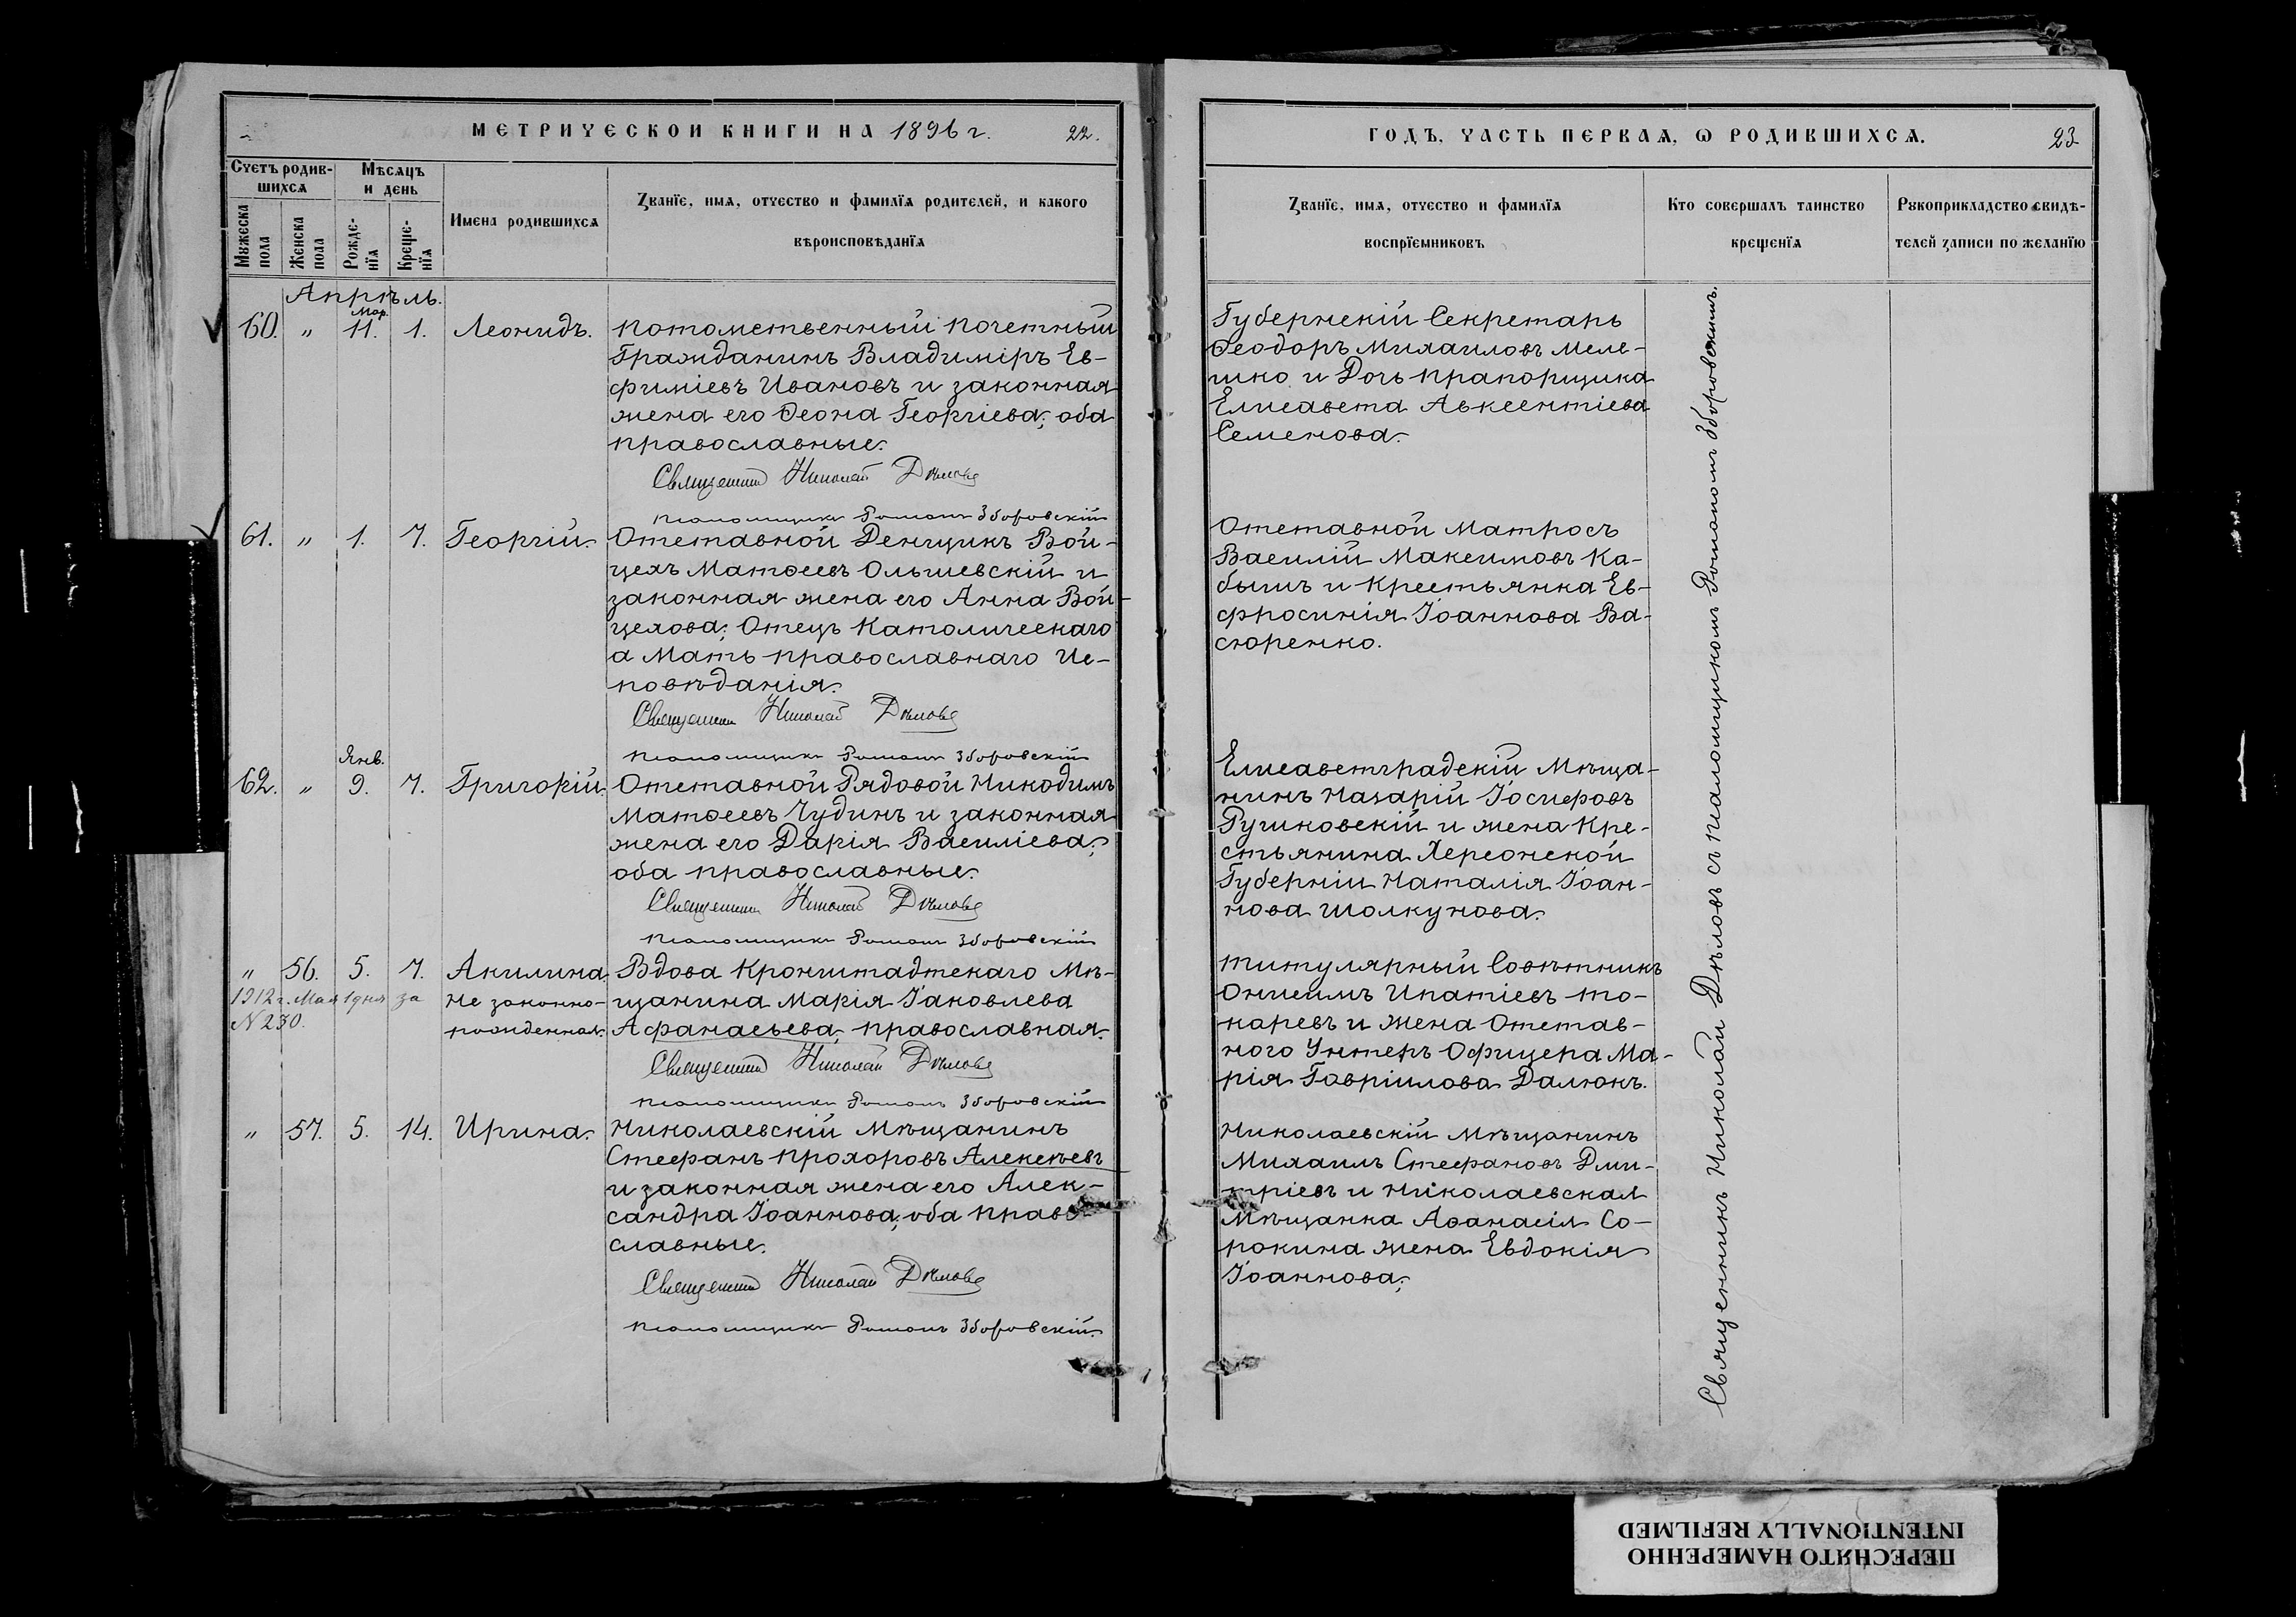 МЕТРИЧЕСКОЙ КНИГИ НА 1896 г. 22.
Счетъ родив-
шихся
Мѣсяцъ
и день
Мужеска
пола
Женска
пола
Рожде-
нїя
Креще-
нїя
Имена родившихся
Званїе, имя, отчество и фамилїя родителей, и какого
вѣроисповѣданїя
Апрѣль.
Мар.
60. " 11. 1. Леонидъ. Потомственный почетный
Гражданинъ Владиміръ Ев-
фиміевъ Ивановъ и законная
жена его Ѳеона Георгіева; оба
православные.
Священникъ Николай Дѣловъ
Псаломщикъ Романъ Зборовскій
61. " 1. 7. Георгій. Отставной Денщикъ Вой-
цехъ Матѳеевъ Ольшевскій и
законная жена его Анна Вой-
цехова; Отецъ Католическаго
а Мать православнаго Ис-
повѣданія.
Священникъ Николай Дѣловъ
Псаломщикъ Романъ Зборовскій
Янв.
62. " 9. 7. Григорій. Отставной Рядовой Никодимъ
Матѳеевъ Чудинъ и законная
жена его Дарія Василіева;
оба православные.
Священникъ Николай Дѣловъ
Псаломщикъ Романъ Зборовскій
" 56. 5. 7. Акилина Вдова Кронштадтскаго Мѣ-
1912 г. Мая 1 дня за не законно- щанина Марія Іаковлева
N 230. рожденная. Афанасьева, православная.
Священникъ Николай Дѣловъ
Псаломщикъ Романъ Зборовскій
" 57. 5. 14. Ирина. Николаевскій Мѣщанинъ
Стефанъ Прохоровъ Алексѣевъ
и законная жена его Алек-
сандра Іоаннова, оба право-
славные.
Священникъ Николай Дѣловъ
Псаломщикъ Романъ Зборовскій.
ГОДЪ, ЧАСТЬ ПЕРВАЯ, Ѡ РОДИВШИХСЯ. 23
Званїе, имя, отчество и фамилїя
воспрїемниковъ
Кто совершалъ таинство
крещенїя
Рукоприкладство свидѣ-
телей записи по желанїю
Губернскій Секретарь
Ѳеодоръ Михаиловъ Меле-
шко и Дочь прапорщика
Елисавета Авксентіева
Семенова.
Отставной Матросъ
Василій Максимовъ Ка-
бышъ и Крестьянка Ев-
фросинія Іоаннова Ва-
сюренко.
Елисаветградскій Мѣща-
нинъ Назарій Іосифовъ
Ручковскій и жена Кре-
стьянина Херсонской
Губерніи Наталія Іоан-
нова Шолкунова.
Титулярный Совѣтникъ
Онисимъ Ипатіевъ То-
каревъ и жена Отстав-
ного Унтеръ Офицера Ма-
рія Гавріилова Далюкъ.
Николаевскій Мѣщанинъ
Михаилъ Стефановъ Дми-
тріевъ и Николаевская
Мѣщанка Аѳанасія Со-
рокина жена Евдокія
Іоаннова;
Священникъ Николай Дѣловъ съ псаломщикомъ Романомъ Зборовскимъ.
ПЕРЕСНЯТО НАМЕРЕННО
INTENTIONALLY REFILMED